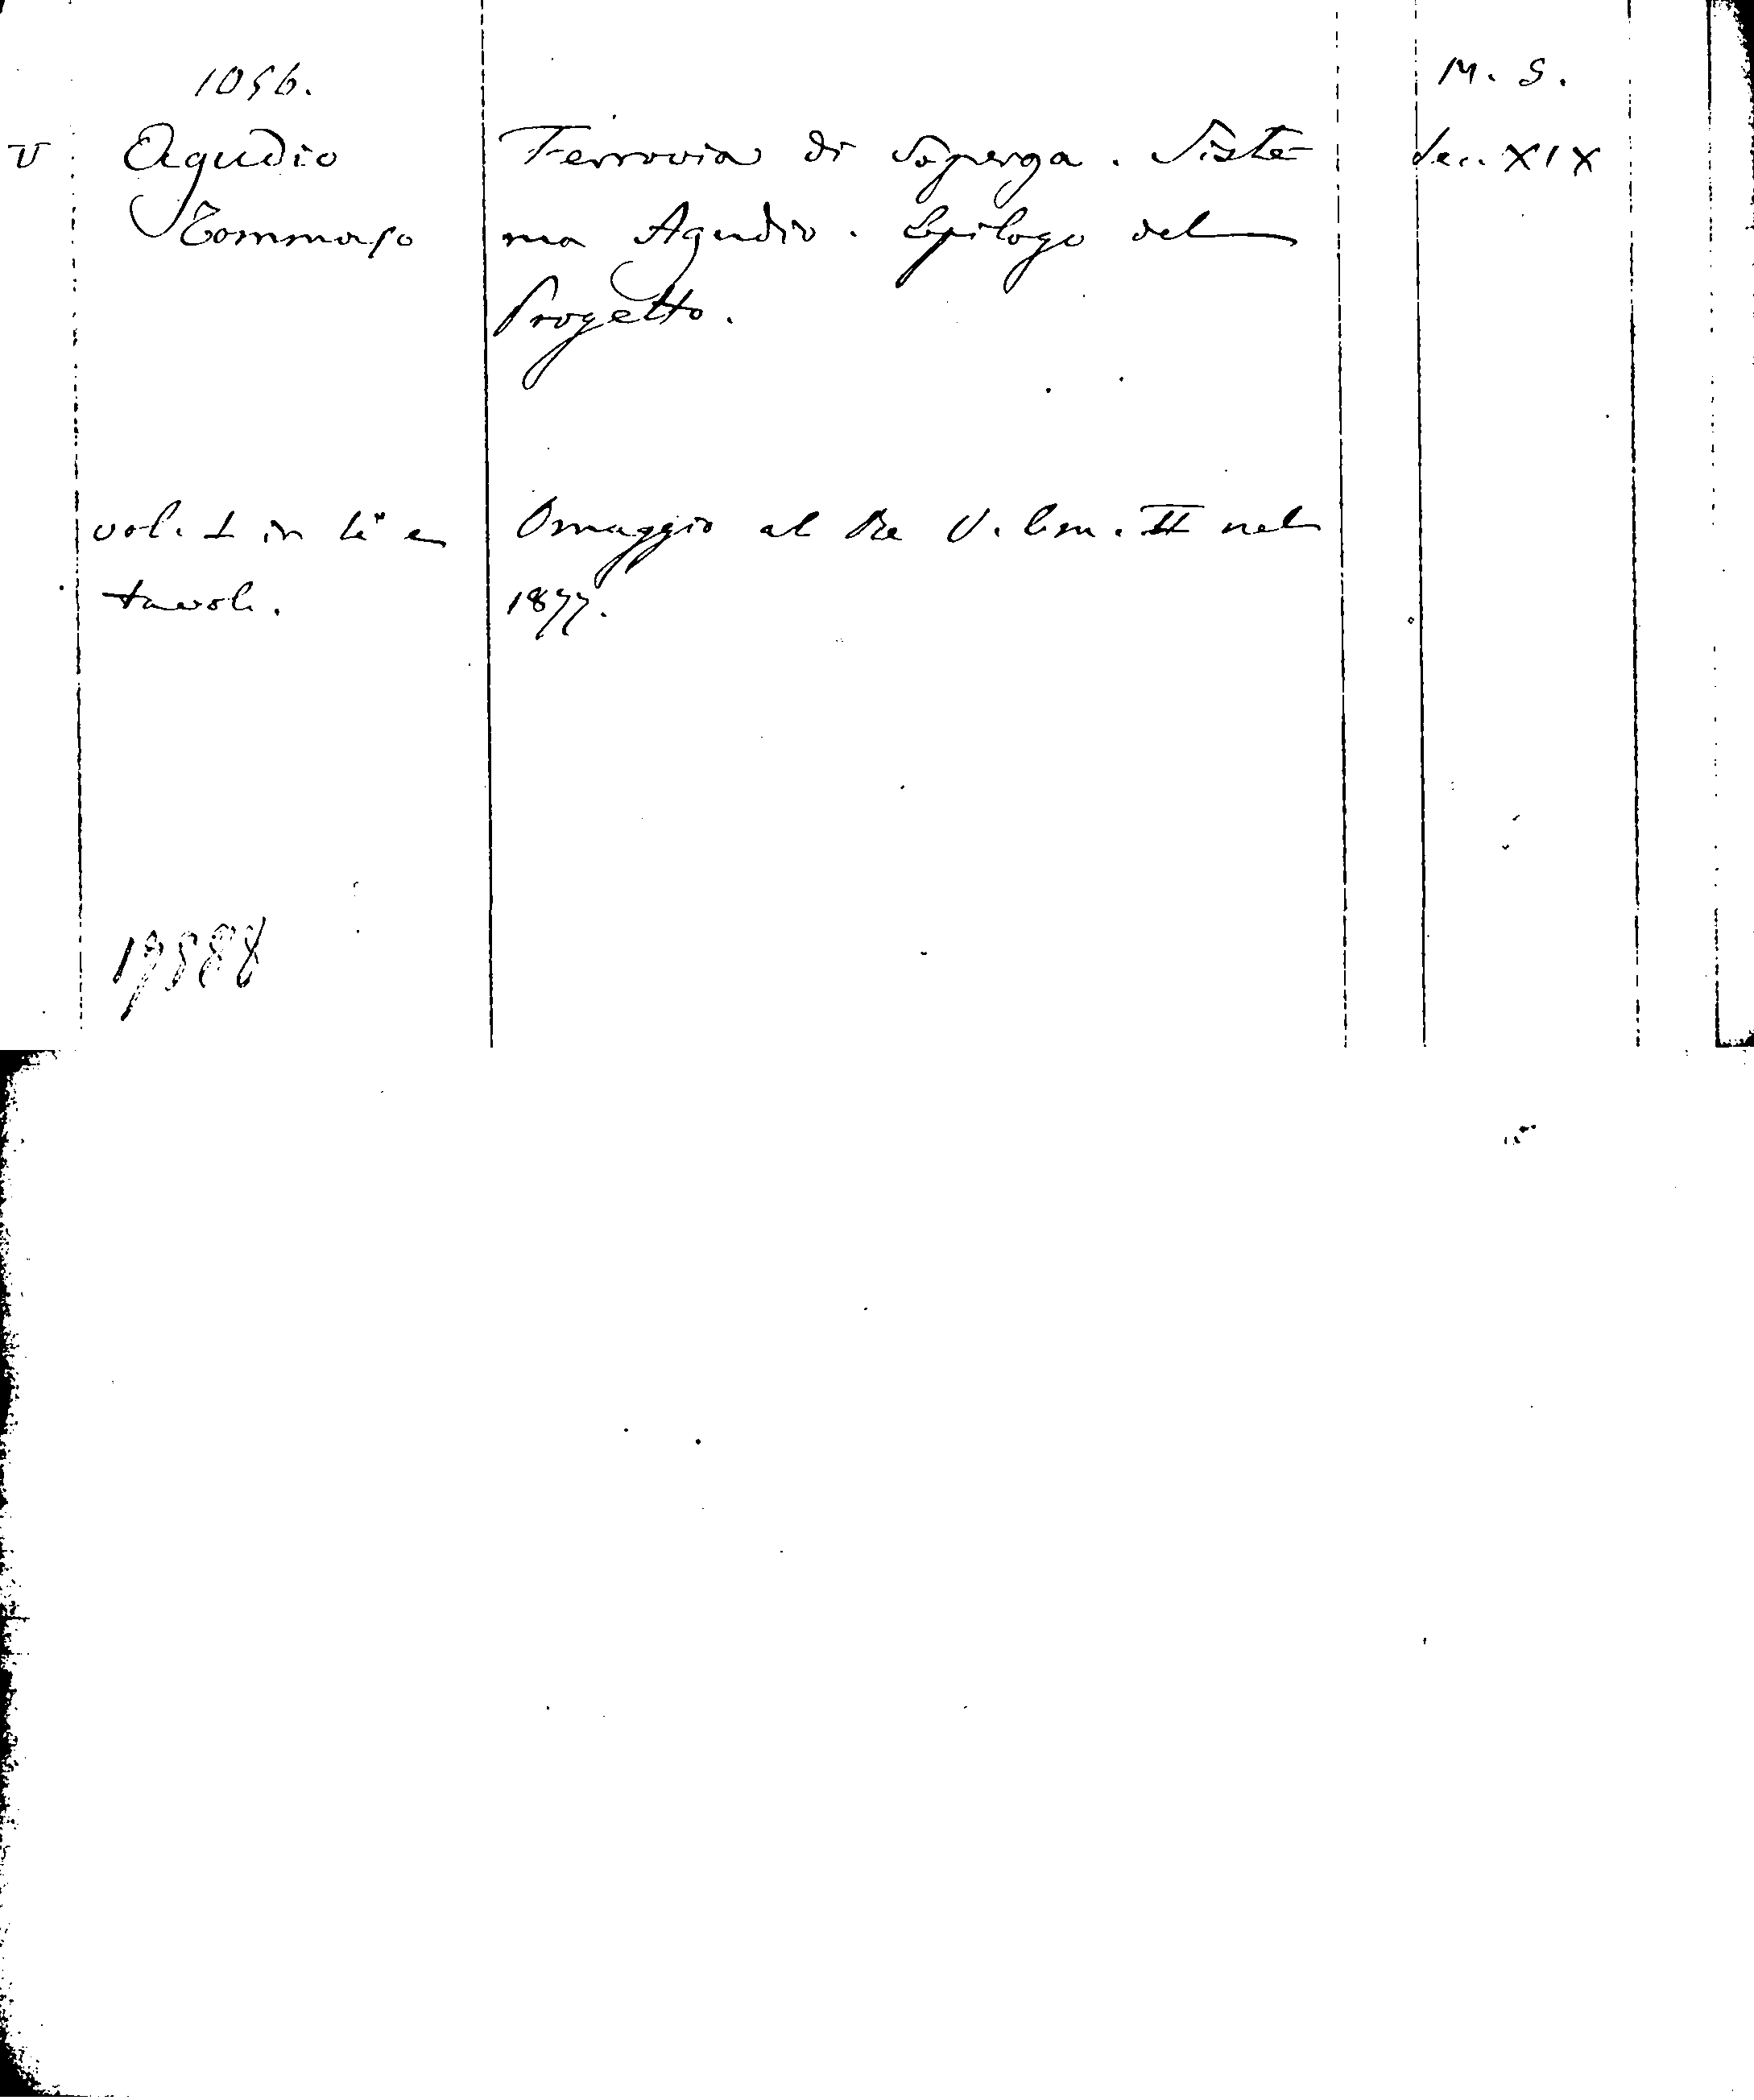 1056.
M. S.
V
Agudio
Ferrovia di Soperga. Siste-
Sec. XIX
Tommaso
ma Agudio. Epilogo del
Progetto.
vol. 1 in 4° e
Omaggio al Re V. Em. II nel
tavole.
1877.
19588